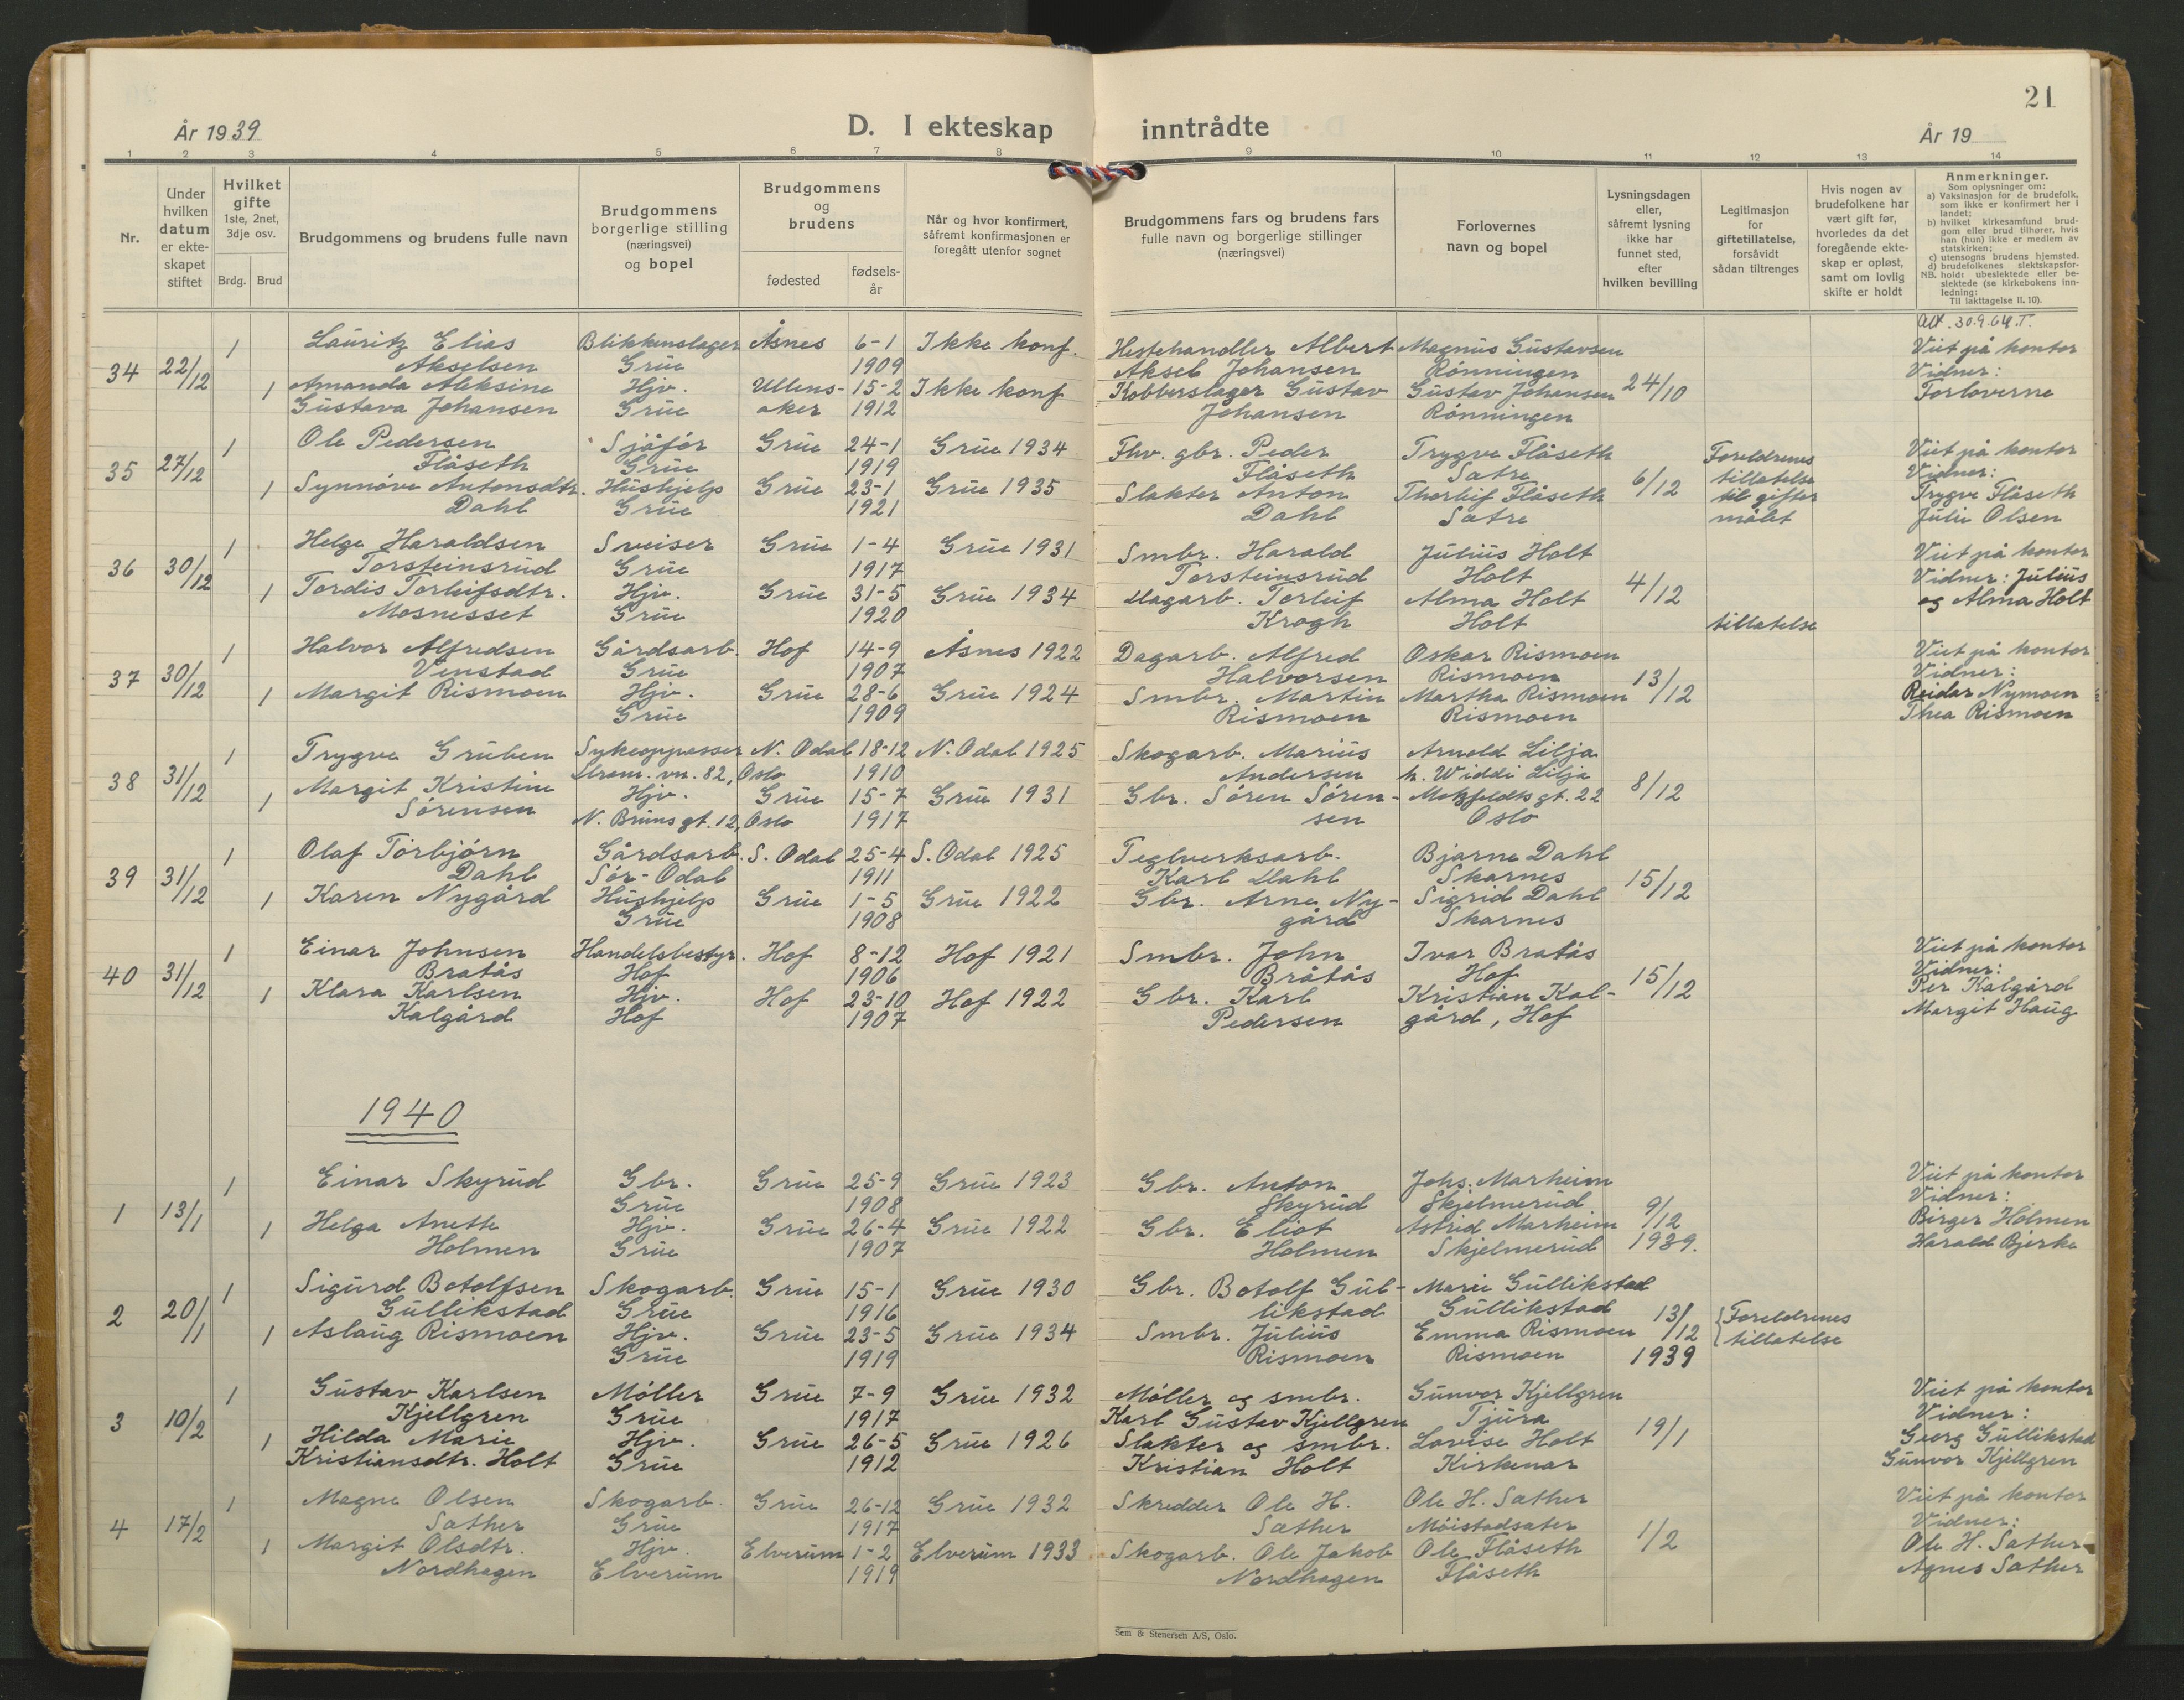 21
År 1939
D. I ekteskap inntrådte
År 19
1 2 3 4 5 6 7 8 9 10 11 12 13 14
Nr.
Under hvilken datum er ekteskapet stiftet
Hvilket gifte
1ste, 2net, 3dje osv.
Brdg. Brud
Brudgommens og brudens fulle navn
Brudgommens borgerlige stilling (næringsvei) og bopel
Brudgommens og brudens
fødested
fødselsår
Når og hvor konfirmert, såfremt konfirmasjonen er foregått utenfor sognet
Brudgommens fars og brudens fars fulle navn og borgerlige stillinger (næringsvei)
Forlovernes navn og bopel
Lysningsdagen eller, såfremt lysning ikke har funnet sted, efter hvilken bevilling
Legitimasjon for giftetillatelse, forsåvidt sådan tiltrenges
Hvis nogen av brudefolkene har vært gift før, hvorledes da det foregående ekteskap er opløst, samt om lovlig skifte er holdt
Anmerkninger.
Som oplysninger om:
a) Vaksinasjon for de brudefolk, som ikke er konfirmert her i landet;
b) hvilket kirkesamfund brudgom eller brud tilhører, hvis han (hun) ikke er medlem av statskirken;
c) utensogns brudens hjemsted.
d) brudefolkenes slektskapsforhold: ubeslektede eller beslektede (se kirkebokens innledning:
NB.
Til iakttagelse II. 10).
Att. 30.9.64.T.
1 Lauritz Elias Blikkenslager Åsnes 6-1 Ikke konf. Hestehandler Albert Magnus Gustavsen Viet på kontor
34 22/12 Akselsen Grue 1909 Aksel Johansen Rønningen Vidner:
1 Amanda Aleksine Hjv. Ullens- 15-2 Ikke konf Kobberslager Gustav Gustav Johansen 24/10 Forloverne
Gustava Johansen Grue aker 1912 Johansen Rønningen
1 Ole Pedersen Sjåfør Grue 24-1 Grue 1934 Fhv. gbr. Peder Trygve Flåseth Foreldrenes Viet på kontor
35 27/12 Flåseth Grue 1919 Flåseth Sætre tillatelse Vidner:
1 Synnøve Antonsdtr. Hushjelp Grue 23-1 Grue 1935 Slakter Anton Thorleif Flåseth 6/12 til gifter Trygve Flåseth
Dahl Grue 1921 Dahl Sætre målet Julie Olsen
1 Helge Haraldsen Sveiser Grue 1-4 Grue 1931 Smbr. Harald Julius Holt Viet på kontor
36 30/12 Torsteinsrud Grue 1917 Torsteinsrud Holt Vidner: Julius
1 Tordis Torleifsdtr. Hjv. Grue 31-5 Grue 1934 Dagarb. Torleif Alma Holt 4/12 og Alma Holt
Mosnesset Grue 1920 Krogh Holt tillatelse
1 Halvor Alfredsen Gårdsarb. Hof 14-9 Åsnes 1922 Dagarb. Alfred Oskar Rismoen Viet på kontor
37 30/12 Venstad Grue 1907 Halvorsen Rismoen Vidner:
1 Margit Rismoen Hjv. Grue 28-6 Grue 1924 Smbr. Martin Martha Rismoen 13/12 Reidar Nymoen
Grue 1909 Rismoen Rismoen Thea Rismoen
1 Trygve Gruben Sykeoppasser N. Odal 18-12 N. Odal 1925 Skogarb. Marius Arnold Lilja
38 31/12 Strøm. vn. 82, Oslo 1910 Andersen h. Widdi Lilja
1 Margit Kristine Hjv. Grue 15-7 Grue 1931 Gbr. Søren Søren- Motzfeldts gt. 22 8/12
Sørensen N. Bruns gt. 12, Oslo 1917 sen Oslo
1 Olaf Torbjørn Gårdsarb. S. Odal 25-4 S. Odal 1925 Teglverksarb. Bjarne Dahl
39 31/12 Dahl Sør-Odal 1911 Karl Dahl Skarnes
1 Karen Nygård Hushjelp Grue 1-5 Grue 1922 Gbr. Arne Ny- Sigrid Dahl 15/12
Grue 1908 gård Skarnes
1 Einar Johnsen Handelsbestyr. Hof 8-12 Hof 1921 Smbr. John Ivar Bratås Viet på kontor
40 31/12 Bratås Hof 1906 Bråtås Hof Vidner:
1 Klara Karlsen Hjv. Hof 23-10 Hof 1922 Gbr. Karl Kristian Kal- 15/12 Per Kalgård
Kalgård Hof 1907 Pedersen gård, Hof Margit Haug
1940
1 Einar Skyrud Gbr. Grue 25-9 Grue 1923 Gbr. Anton Johs. Marheim Viet på kontor
1 13/1 Grue 1908 Skyrud Skjelmerud Vidner:
1 Helga Anette Hjv. Grue 26-4 Grue 1922 Gbr. Eliot Astrid Marheim 9/12 Birger Holmen
Holmen Grue 1907 Holmen Skjelmerud 1939. Harald Bjerke
1 Sigurd Botolfsen Skogarb. Grue 15-1 Grue 1930 Gbr. Botolf Gul- Marie Gullikstad
2 20/1 Gullikstad Grue 1916 likstad Gullikstad Foreldrenes
1 Aslaug Rismoen Hjv. Grue 23-5 Grue 1934 Smbr. Julius Emma Rismoen 13/12 tillatelse
Grue 1919 Rismoen Rismoen 1939
1 Gustav Karlsen Møller Grue 7-9 Grue 1932 Møller og smbr. Gunvor Kjellgren Viet på kontor
3 10/2 Kjellgren Grue 1917 Karl Gustav Kjellgren Tjura Vidner:
1 Hilda Marie Hjv. Grue 26-5 Grue 1926 Slakter og smbr. Lovise Holt 19/1 Georg Gullikstad
Kristiansdtr. Holt Grue 1912 Kristian Holt Kirkenær Gunvor Kjellgren
1 Magne Olsen Skogarb. Grue 26-12 Grue 1932 Skredder Ole H. Ole H. Sæther Viet på kontor
4 17/2 Sæther Grue 1917 Sæther Møistadsæter Vidner:
1 Margit Olsdtr. Hjv. Elverum 1-2 Elverum 1933 Skogarb. Ole Jakob Ole Flåseth 1/2 Ole H. Sæther
Nordhagen Elverum 1919 Nordhagen Flåseth Agnes Sæther
Sem & Stenersen A/S, Oslo.